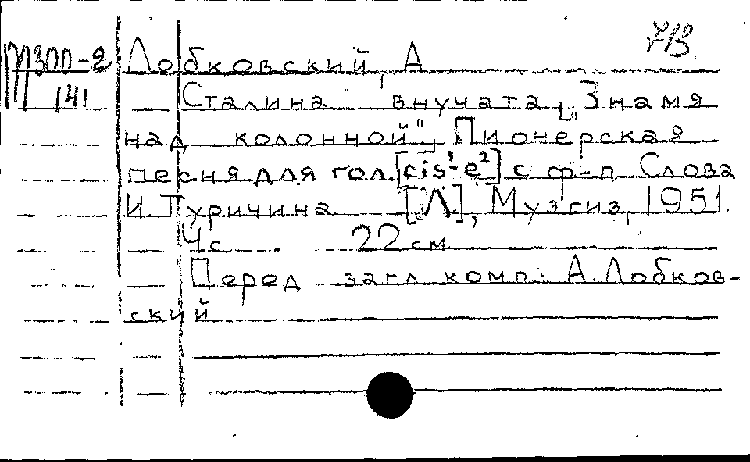 713
М300-2 Лобковский, А
141 Сталина внучата, „Знамя
над колонной", Пионерская
песня для гол. [cis¹-e²] с ф-п Слова
И. Туричина [Л], Музгиз, 1951.
4с. 22 см
Перед загл. комп: А. Лобков-
ский